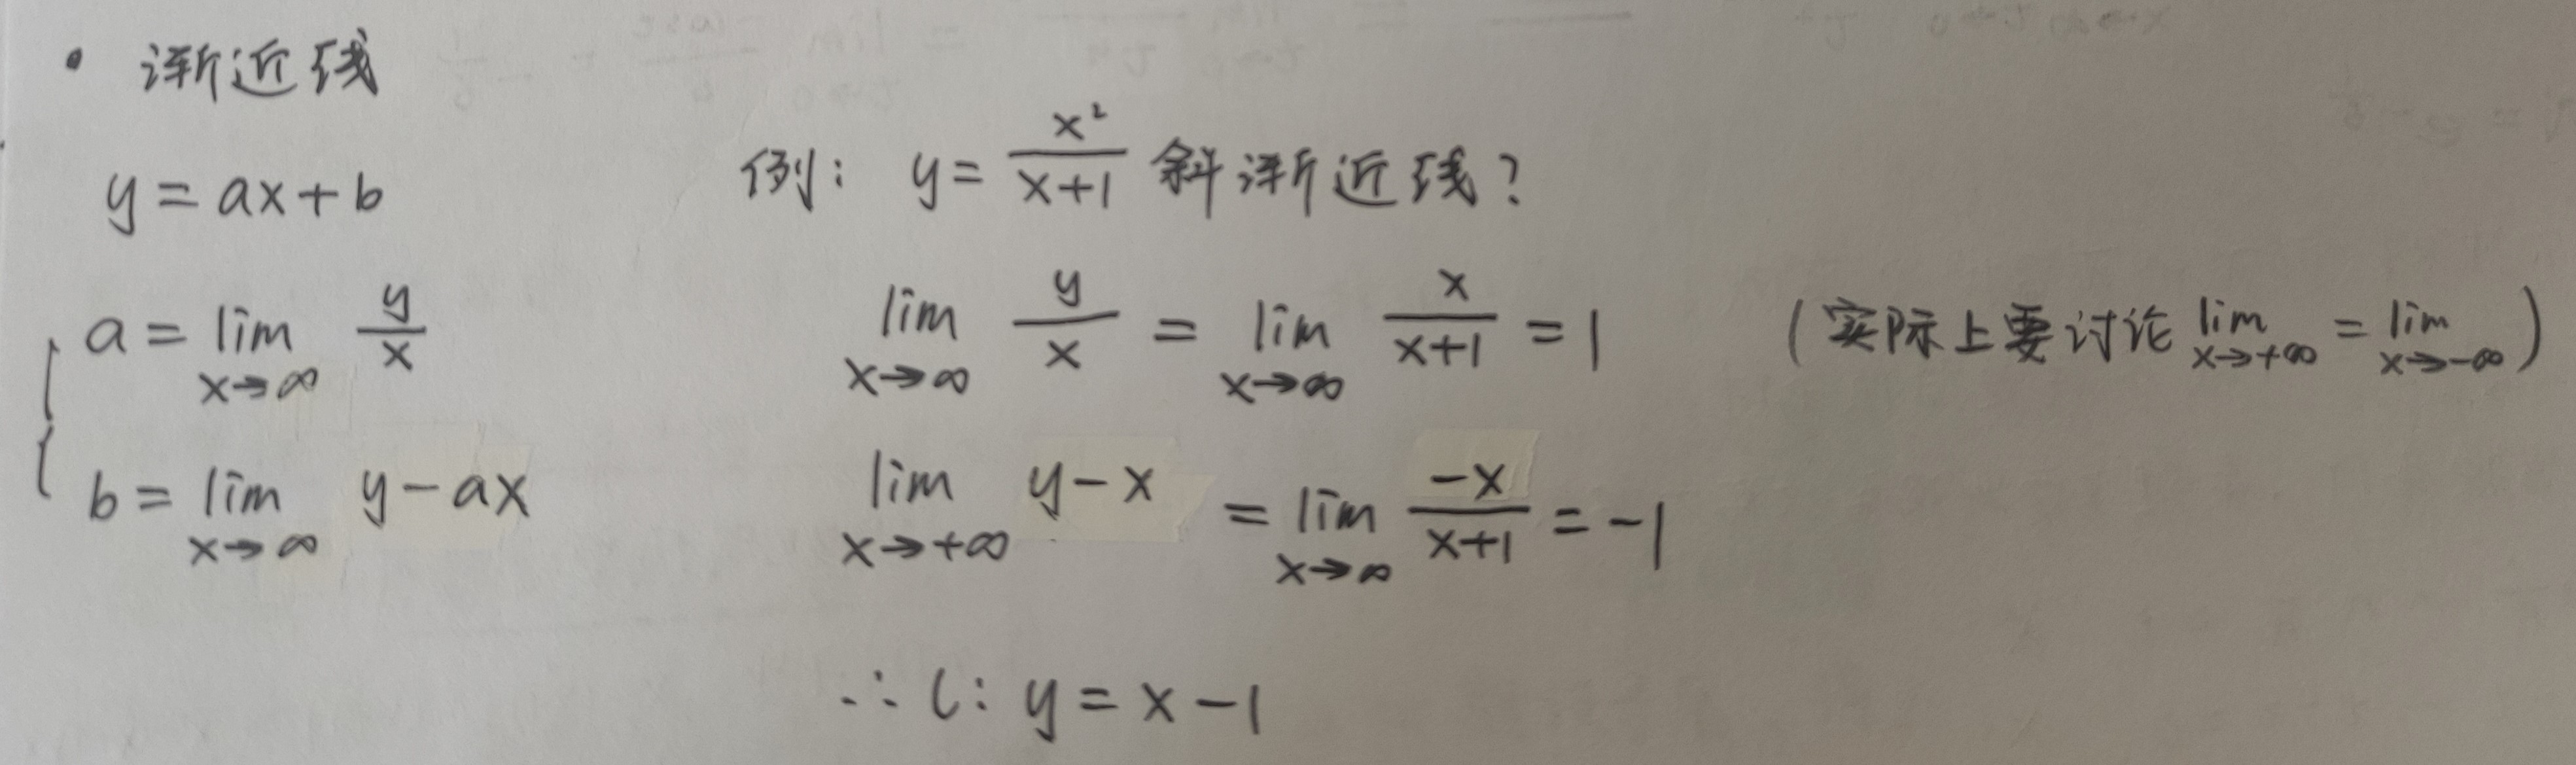 • 渐近线
y = ax + b
a = lim x→∞ y/x
b = lim x→∞ y - ax
例: y = x²/(x+1) 斜渐近线?
lim x→∞ y/x = lim x→∞ x/(x+1) = 1 (实际上要讨论 lim x→+∞ = lim x→-∞)
lim x→+∞ y - x = lim x→∞ -x/(x+1) = -1
∴ l: y = x - 1